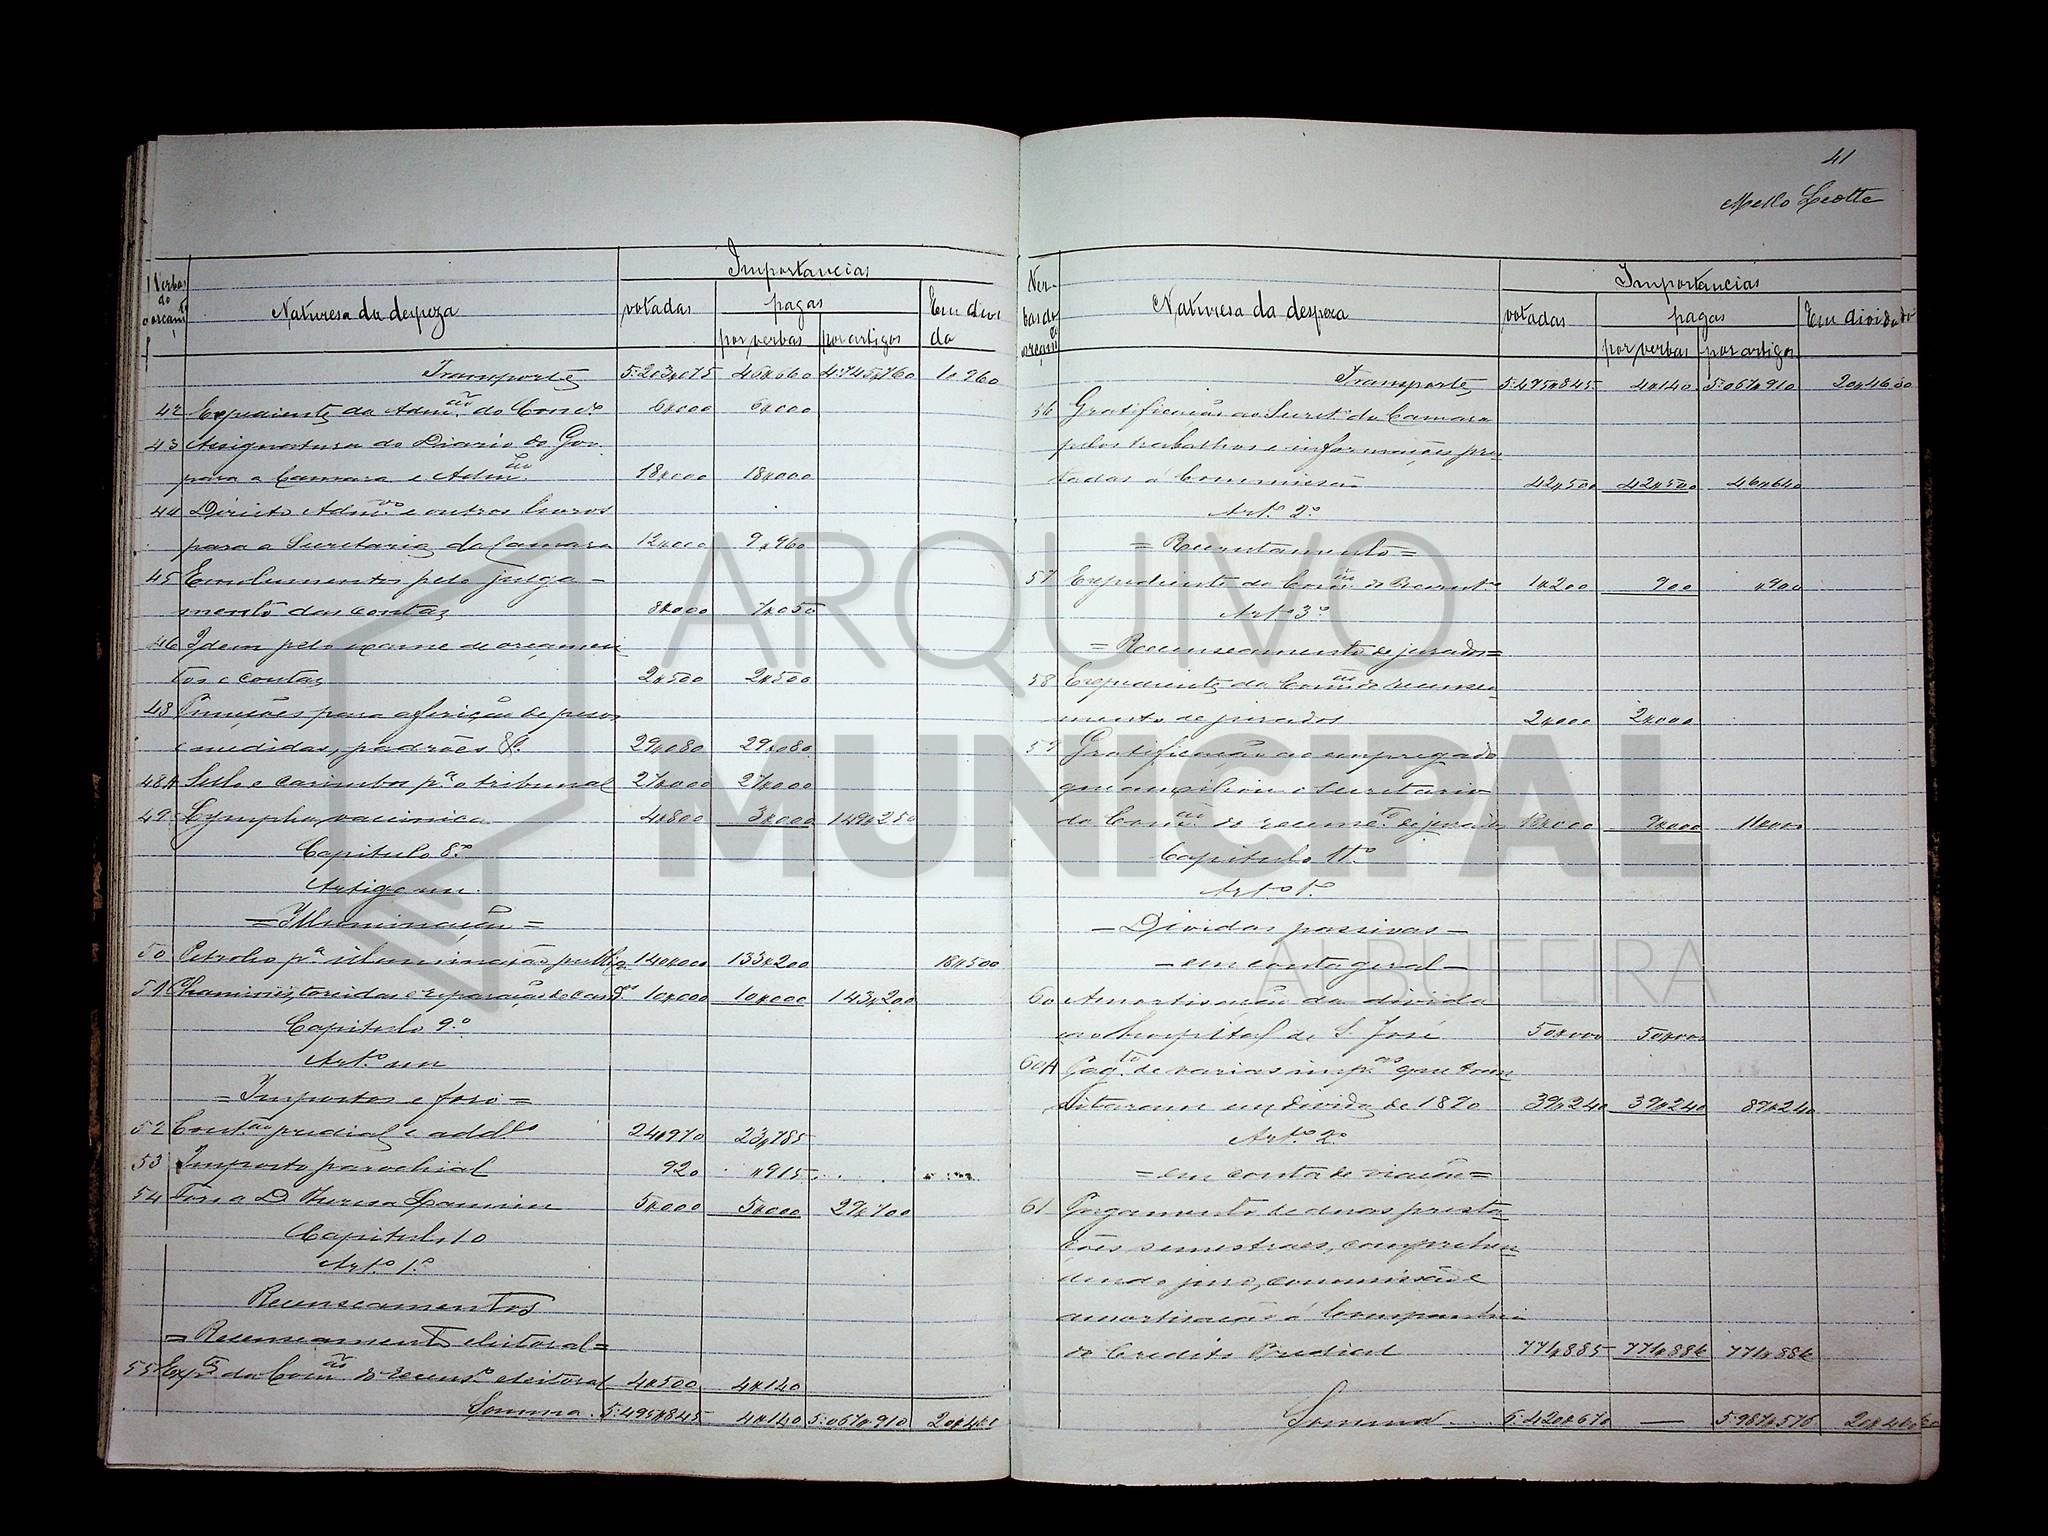 41
Mello Leotte
Verbas do orçam.to
Naturesa da despeza
Importancias
votadas
pagas
por verbas
por artigos
Em divida
Transporte 5:203,075 46,660 4:745,760 1,960
42 Expediente da Adm.ção do Conc.o 6,000 6,000
43 Assignatura do Diario do Gov.
para a Camara e Adm.ção 18,000 18,000
44 Direito Adm.vo e outros livros
para a Secretaria da Camara 12,000 9,960
45 Emolumentos pelo julga-
mento das contas 8,000 7,050
46 Idem pelo exame de orçamen
tos e contas 2,500 2,500
48 Punções para aferição de pesos
e medidas, padrões &c. 29,080 29,080
48A Sello e carimbos p.a o tribunal 27,000 27,000
49 Lympha vaccinica 4,800 3,000 149,250
Capitulo 8.o
Artigo un.
=Illuminação=
50 Petroleo p.a illuminação publica 140,000 133,200 18,500
51 Chaminés, torcidas e reparação de cand.os 10,000 10,000 143,200
Capitulo 9.o
Art.o un
=Impostos e foro=
52 Cont.ão predial e add.es 24,970 23,785
53 Imposto parochial 920 ,915
54 Foro a D. Thereza 5,000 5,000 29,700
Capitulo 10
Art.o 1.o
Recenseamentos
=Recenseamento eleitoral=
55 Exp.te da Com.ão de recens.o eleitoral 4,500 4,140
Somma 5:495,845 4,140 5:067,910 20,460
Verbas do orçam.to
Naturesa da despeza
Importancias
votadas
pagas
por verbas
por artigos
Em divida
Transporte 5:495,845 4,140 5:067,910 20,460
56 Gratificação ao Secret.o da Camara
pelos trabalhos e informações pres
tadas á Commissão 42,500 42,500 46,640
Art.o 2.o
=Recrutamento=
57 Expediente da Com.ão de Recrut.o 1,200 900 ,900
Art.o 3.o
=Recenseamento de jurados=
58 Expediente da Com.ão de recensea
mento de jurados 2,000 2,000
59 Gratificação ao empregado
que auxiliou o secretario
da Com.ão de recense.to de jurados 12,000 9,000 11,000
Capitulo 11.o
Art.o 1.o
-Dividas passivas-
-em conta geral-
60 Amortisação da divida
ao hospital de S. José 50,000 50,000
60A Pag.to de varias imp.as que tran
sitaram em divida de 1890 39,240 39,240 89,240
Art.o 2.o
=em conta de viação=
61 Pagamento de duas presta-
ções semestraes, comprehen
dendo juro, commissão e
amortisação á Companhia
do Credito Predial 771,885 771,886 771,886
Somma 6:420,670 — 5:987,576 20,460
ARQUIVO
MUNICIPAL
ALBUFEIRA